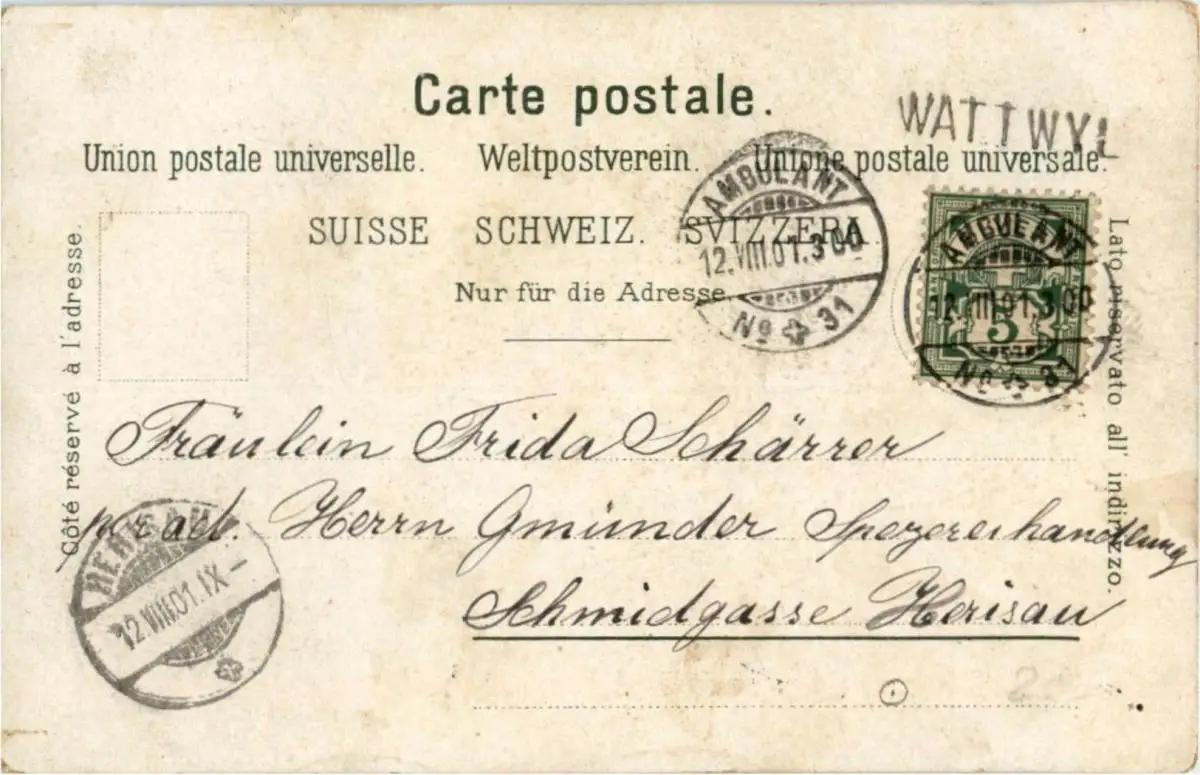 Carte postale.
WATTWYL
Union postale universelle. Weltpostverein. Unione postale universale.
SUISSE SCHWEIZ. SVIZZERA.
Nur für die Adresse.
Côté réservé à l'adresse.
Lato riservato all' indirizzo.
AMBULANT
12.VIII.01.3 00
No 31
AMBULANT
12.VIII.01.3 00
No 31
5
Fräulein Frida Schärrer
per ad. Herrn Gmünder Spezereihandlung
Schmidgasse Herisau
HERISAU
12.VIII.01.IX-
2